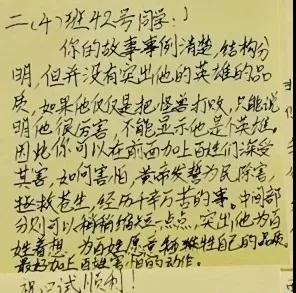 二(4)班42号同学:)
你的故事事例清楚,结构分
明,但并没有突出他的英雄的品
质,如果他仅仅是把怪兽打败,只能说
明他很厉害,不能显示他是个英雄。
因此你可以在前面加上百姓们深受
其害,如何害怕,黄帝发誓为民除害,
拯救苍生,经历千辛万苦的事。中间部
分则可以稍稍缩短一点点,突出他为百
姓着想,为百姓愿意牺牲自己的品质。
最好加上百姓害怕的动作。
祝口试顺利!